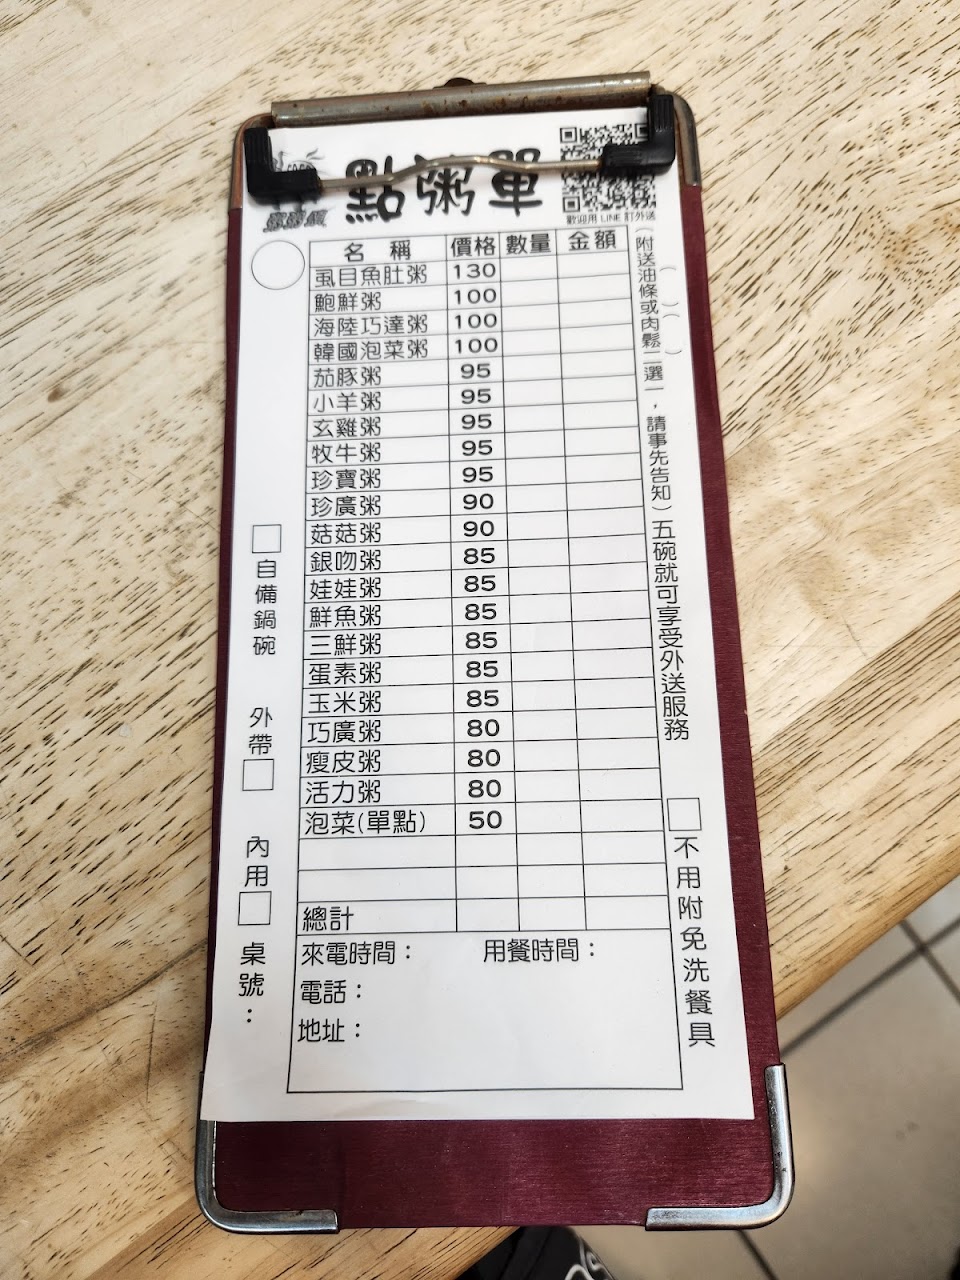 點粥單
歡迎用 LINE 訂外送
名稱 價格 數量 金額
虱目魚肚粥 130
鮑鮮粥 100
海陸巧達粥 100
韓國泡菜粥 100
茄豚粥 95
小羊粥 95
玄雞粥 95
牧牛粥 95
珍寶粥 95
珍廣粥 90
菇菇粥 90
銀吻粥 85
娃娃粥 85
鮮魚粥 85
三鮮粥 85
蛋素粥 85
玉米粥 85
巧廣粥 80
瘦皮粥 80
活力粥 80
泡菜(單點) 50
總計
來電時間： 用餐時間：
電話：
地址：
(附送油條( )或肉鬆( )二選一，請事先告知)五碗就可享受外送服務
不用附免洗餐具
自備鍋碗
外帶
內用
桌號：